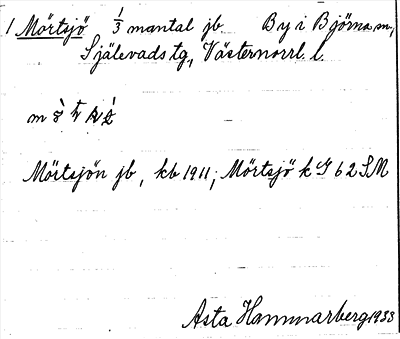 1 Mörtsjö 1/3 mantal jb. By i Björna sn,
Själevads tg, Västernorrl. l.
Mörtsjön jb, kb 1911; Mörtsjö k G 62 SM
Asta Hammarberg 1933